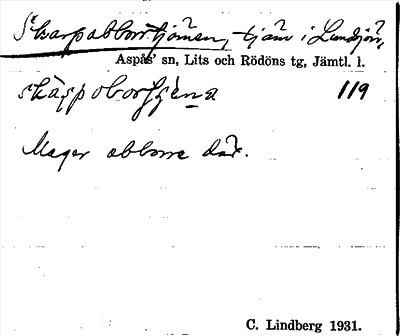 Skarpabborrtjärnen, tjärn i Landsjön,
Aspås' sn, Lits och Rödöns tg, Jämtl. l.
119
Mager abborre där.
C. Lindberg 1931.